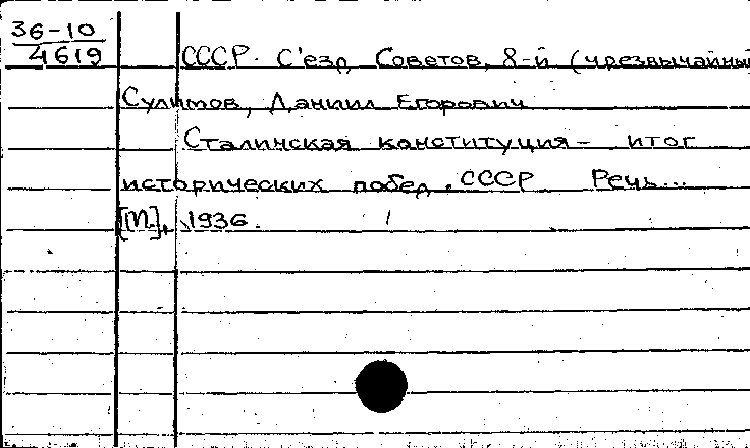 36-10
4619
СССР. С'езд Советов, 8-й (чрезвычайный
Сулимов, Даниил Егорович
Сталинская конституция - итог
исторических побед. СССР Речь...
[М.], 1936.